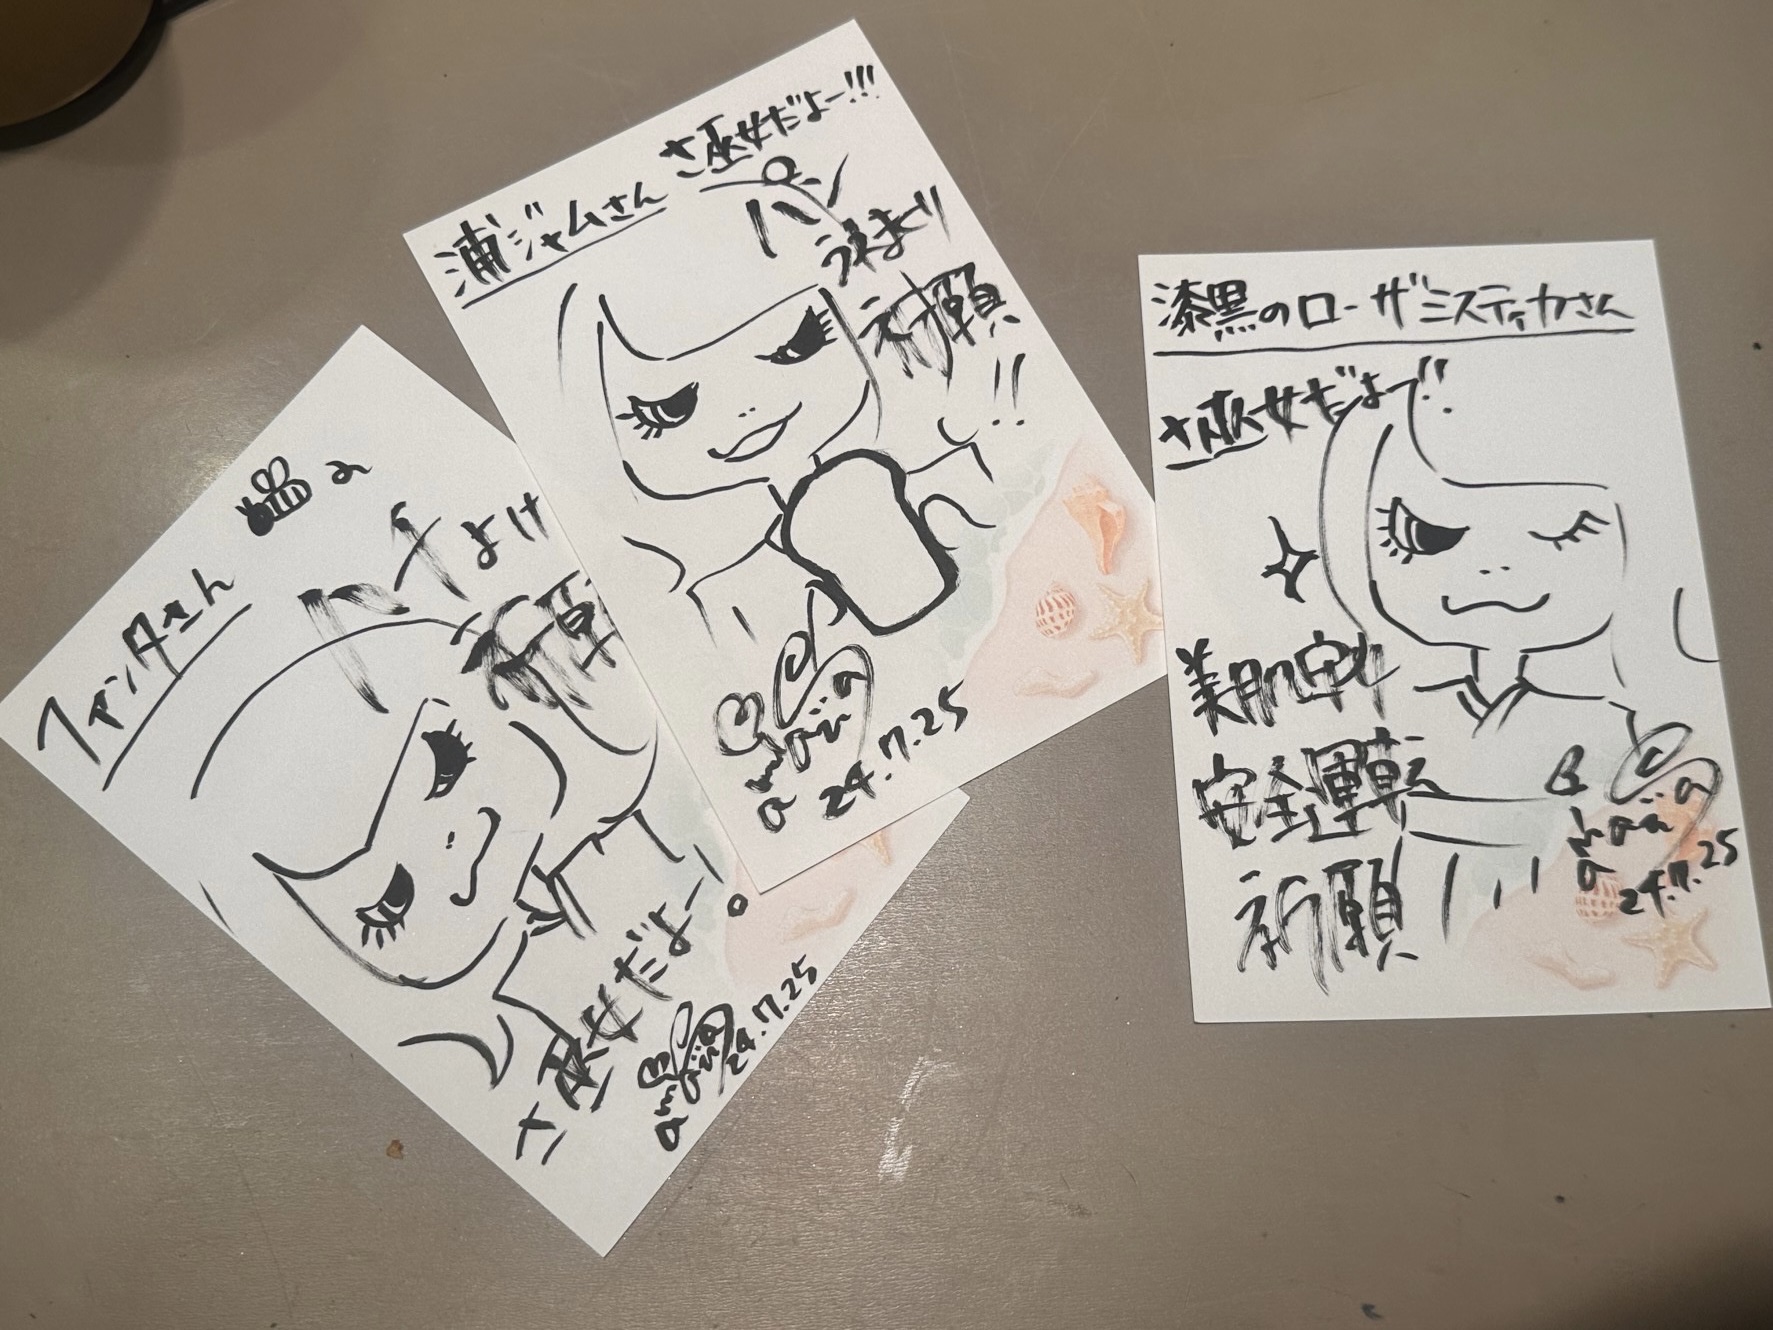 ファンタさん
よけ
さ巫女だよー。
24.7.25
浦ジャムさん
さ巫女だよー!!!
パン
うれまくり
祈願
!!
24.7.25
漆黒のローザミスティカさん
さ巫女だよ〜!!
美肌
安全運転
祈願
24.7.25